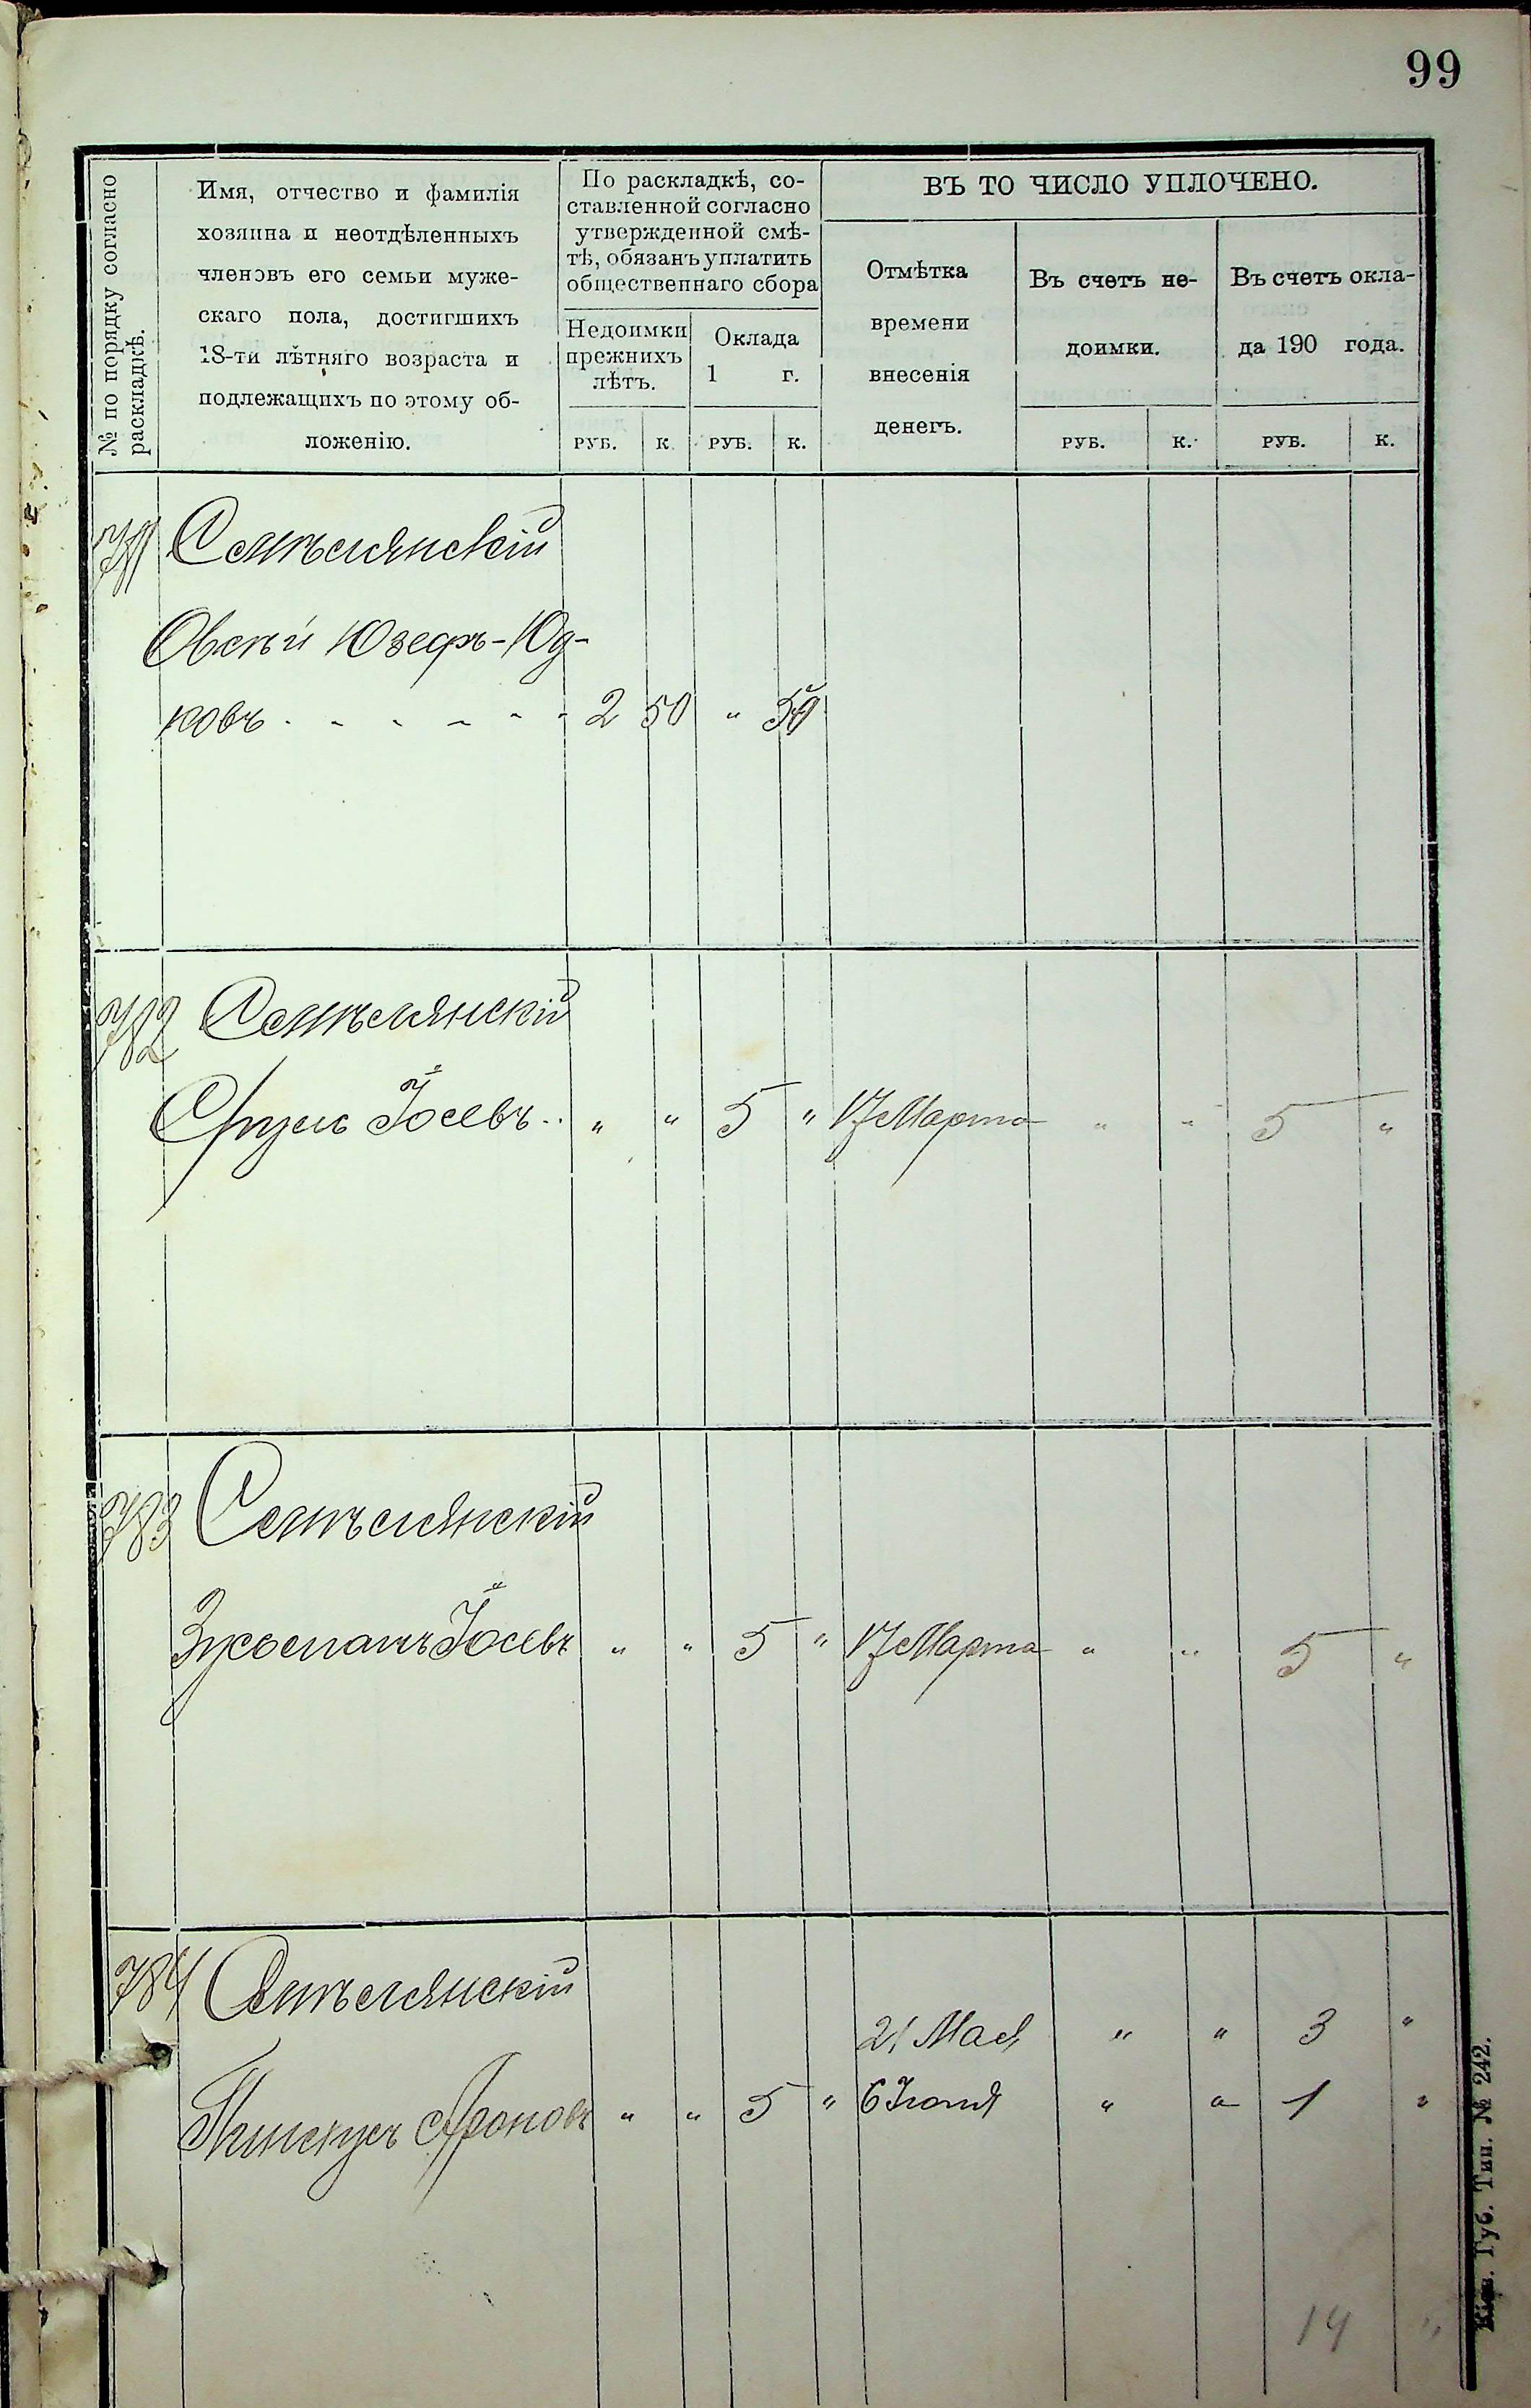 99
№ по порядку согласно
раскладкѣ.
Имя, отчество и фамилія
хозяина и неотдѣленныхъ
членовъ его семьи муже-
скаго пола, достигшихъ
18-ти лѣтняго возраста и
подлежащихъ по этому об-
ложенію.
По раскладкѣ, со-
ставленной согласно
утвержденной смѣ-
тѣ, обязанъ уплатить
общественнаго сбора
Недоимки
прежнихъ
лѣтъ.
Оклада
1 г.
ВЪ ТО ЧИСЛО УПЛОЧЕНО.
Отмѣтка
времени
внесенія
денегъ.
Въ счетъ не-
доимки.
Въ счетъ окла-
да 190 года.
РУБ. К. РУБ. К. РУБ. К. РУБ. К.
781
Юзефъ-Юд-
ковъ - - - - - - 2 50 "
782
Сруль Іосевъ - " " 5 " 17 Марта " " 5 "
783
Іосевъ " " 5 " 17 Марта " " 5 "
784
21 Мая " " 3 "
Пинкусъ Ароновъ " " 5 " 6 Іюня " " 1 "
14 "
Кіев. Губ. Тип. № 242.